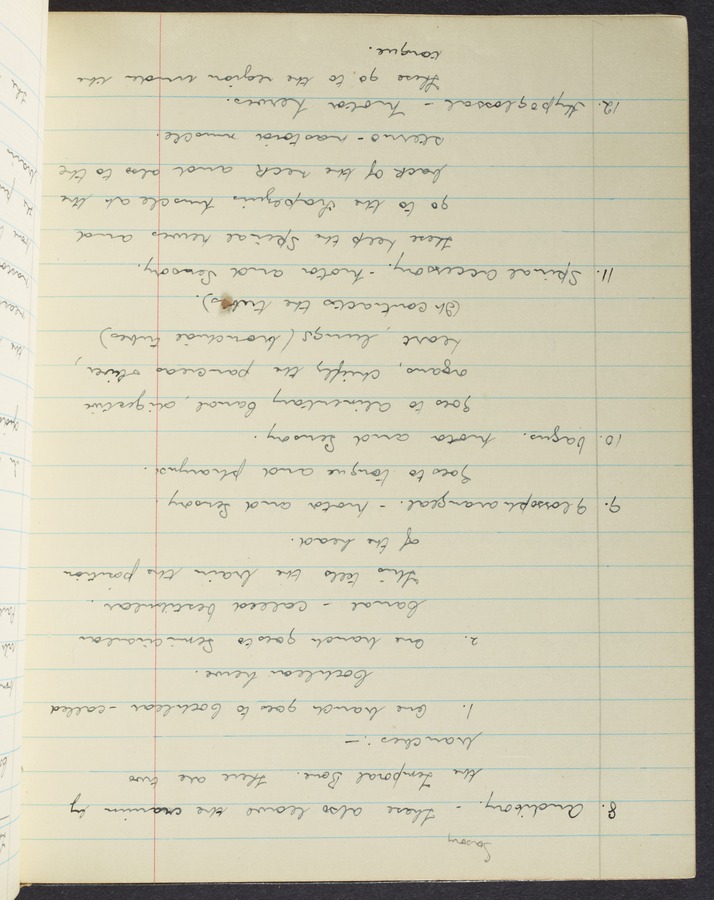 Sensory
8. Auditory. - These also leave the cranium by
the Temporal Bone. There are two
branches :-
1. One branch goes to Cochlear - called
Cochlear nerve.
2. One branch goes to Semi-circular
Canal - called Vestibular.
This tells the brain the position
of the head.
9. Glossopharangeal. - Motor and Sensory.
Goes to tongue and pharynx.
10. Vagus. Motor and Sensory.
Goes to Alimentary Canal, digestive
organs, chiefly the pancreas & liver,
heart, lungs (bronchial tubes)
(It contracts the tubes).
11. Spinal Accessory. - Motor and Sensory.
These help the Spinal nerves and
go to the Trapezius muscle at the
back of the neck and also to the
sterno-mastoid muscle.
12. Hypoglossal - Motor nerves.
These go to the region under the
tongue.